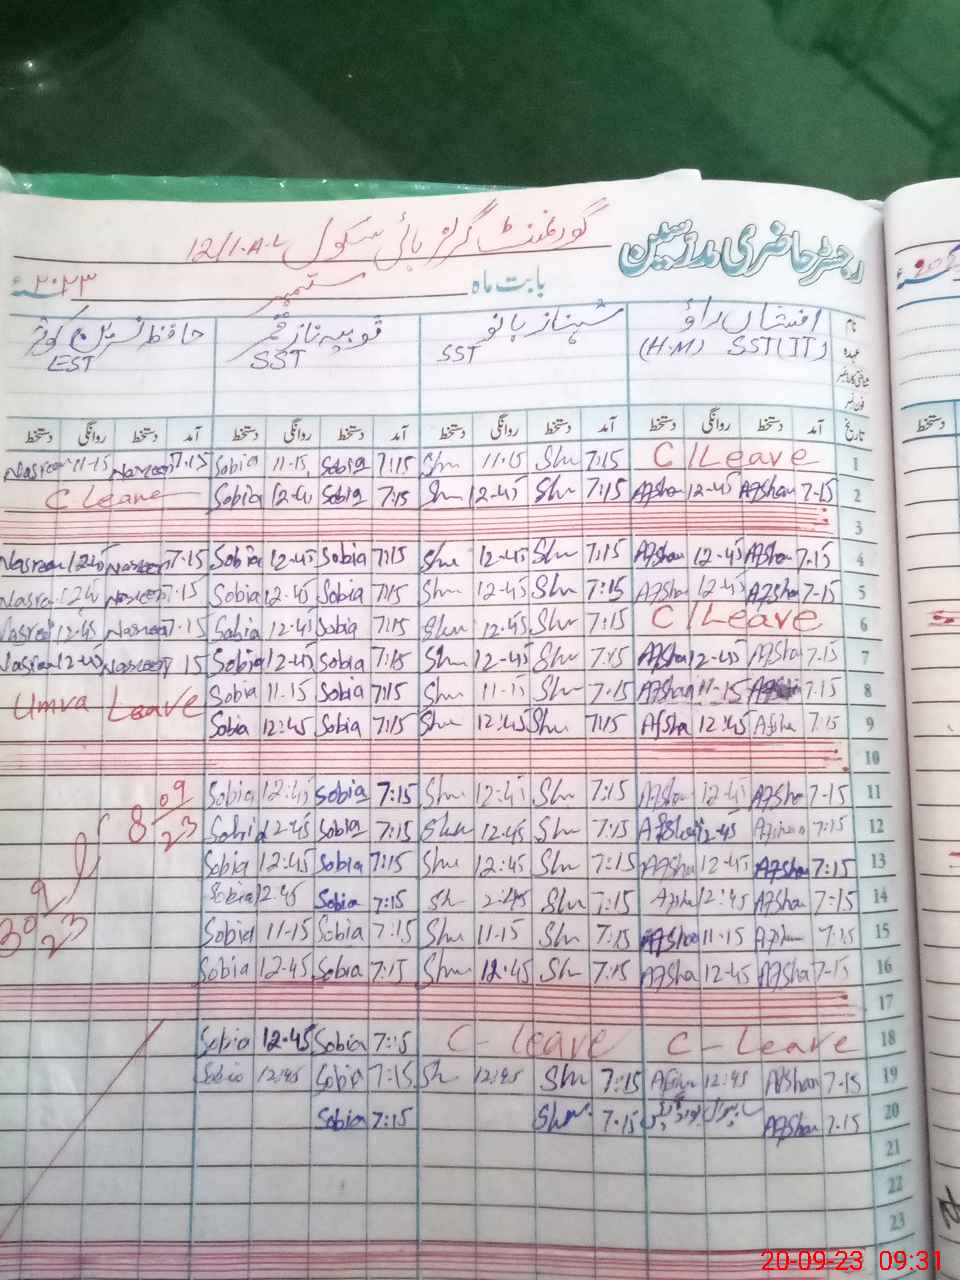 رجسٹر حاضری مدرسین گورنمنٹ گرلز ہائی سکول 12/1.A.L
بابت ماہ ستمبر ۲۰۲۳ء
نام افشاں راؤ شہناز بانو ثوبیہ ناز حافظ نسرین کوثر
عہدہ (H.M) SST(IT) SST SST EST
شناختی کارڈ نمبر
فون نمبر
تاریخ آمد دستخط روانگی دستخط آمد دستخط روانگی دستخط آمد دستخط روانگی دستخط آمد دستخط روانگی دستخط
Nasreen 11-15 Nasreen 7.15 Sobia 11-15 Sobia 7:15 Shu 11.15 Shu 7:15 C/Leave 1
C Leave Sobia 12-45 Sobia 7:15 Shu 12-45 Shu 7:15 Afshan 12-45 Afshan 7-15 2
3
Nasreen 12:45 Nasreen 7.15 Sobia 12-45 Sobia 7:15 Shu 12-45 Shu 7:15 Afshan 12-45 Afshan 7.15 4
Nasreen 12:45 Nasreen 7.15 Sobia 12.45 Sobia 7:15 Shu 12-45 Shu 7:15 Afshan 12-45 Afshan 7-15 5
Nasreen 12.45 Nasreen 7.15 Sobia 12.45 Sobia 7:15 Shu 12:45 Shu 7:15 C/Leave 6
Nasreen 12-45 Nasreen 7 15 Sobia 12-45 Sobia 7:15 Shu 12-45 Shu 7:15 Afsha 12-45 Afsha 7.15 7
Umra Leave Sobia 11-15 Sobia 7:15 Shu 11-15 Shu 7.15 Afshan 11-15 7.15 8
Sobia 12:45 Sobia 7:15 Shu 12:45 Shu 7:15 Afsha 12:45 Afsha 7:15 9
10
8 09/23 Sobia 12:45 Sobia 7:15 Shu 12:45 Shu 7:15 Afshan 12-45 Afsha 7-15 11
Sobia 12-45 Sobia 7:15 Shu 12.45 Shu 7:15 Afshan 12-45 Afshan 7:15 12
Sobia 12:45 Sobia 7:15 Shu 12:45 Shu 7:15 Afshan 12-45 Afshan 7:15 13
30 9/23 Sobia 12.45 Sobia 7:15 Sh 2:45 Shu 7:15 Afsha 12:45 Afshan 7:15 14
Sobia 11-15 Sobia 7:15 Shu 11-15 Shu 7:15 Afshan 11-15 Afshan 7:15 15
Sobia 12-45 Sobia 7:15 Shu 12.45 Shu 7:15 Afsha 12-45 Afsha 7-15 16
17
Sobia 12.45 Sobia 7:15 C- Leave C - Leave 18
Sobia 12:45 Sobia 7:15 Sh 12:45 Shu 7:15 Afshan 12:45 Afshan 7-15 19
Sobia 7:15 Shu 7.15 ساہیوال بورڈ Afshan 7.15 20
21
22
23
دستخط
20-09-23 09:31